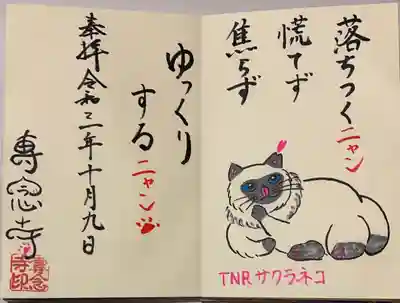 落ちつくニャン
慌てず
焦らず
TNRサクラネコ
ゆっくり
するニャン
奉拝令和二年十月九日
専念寺